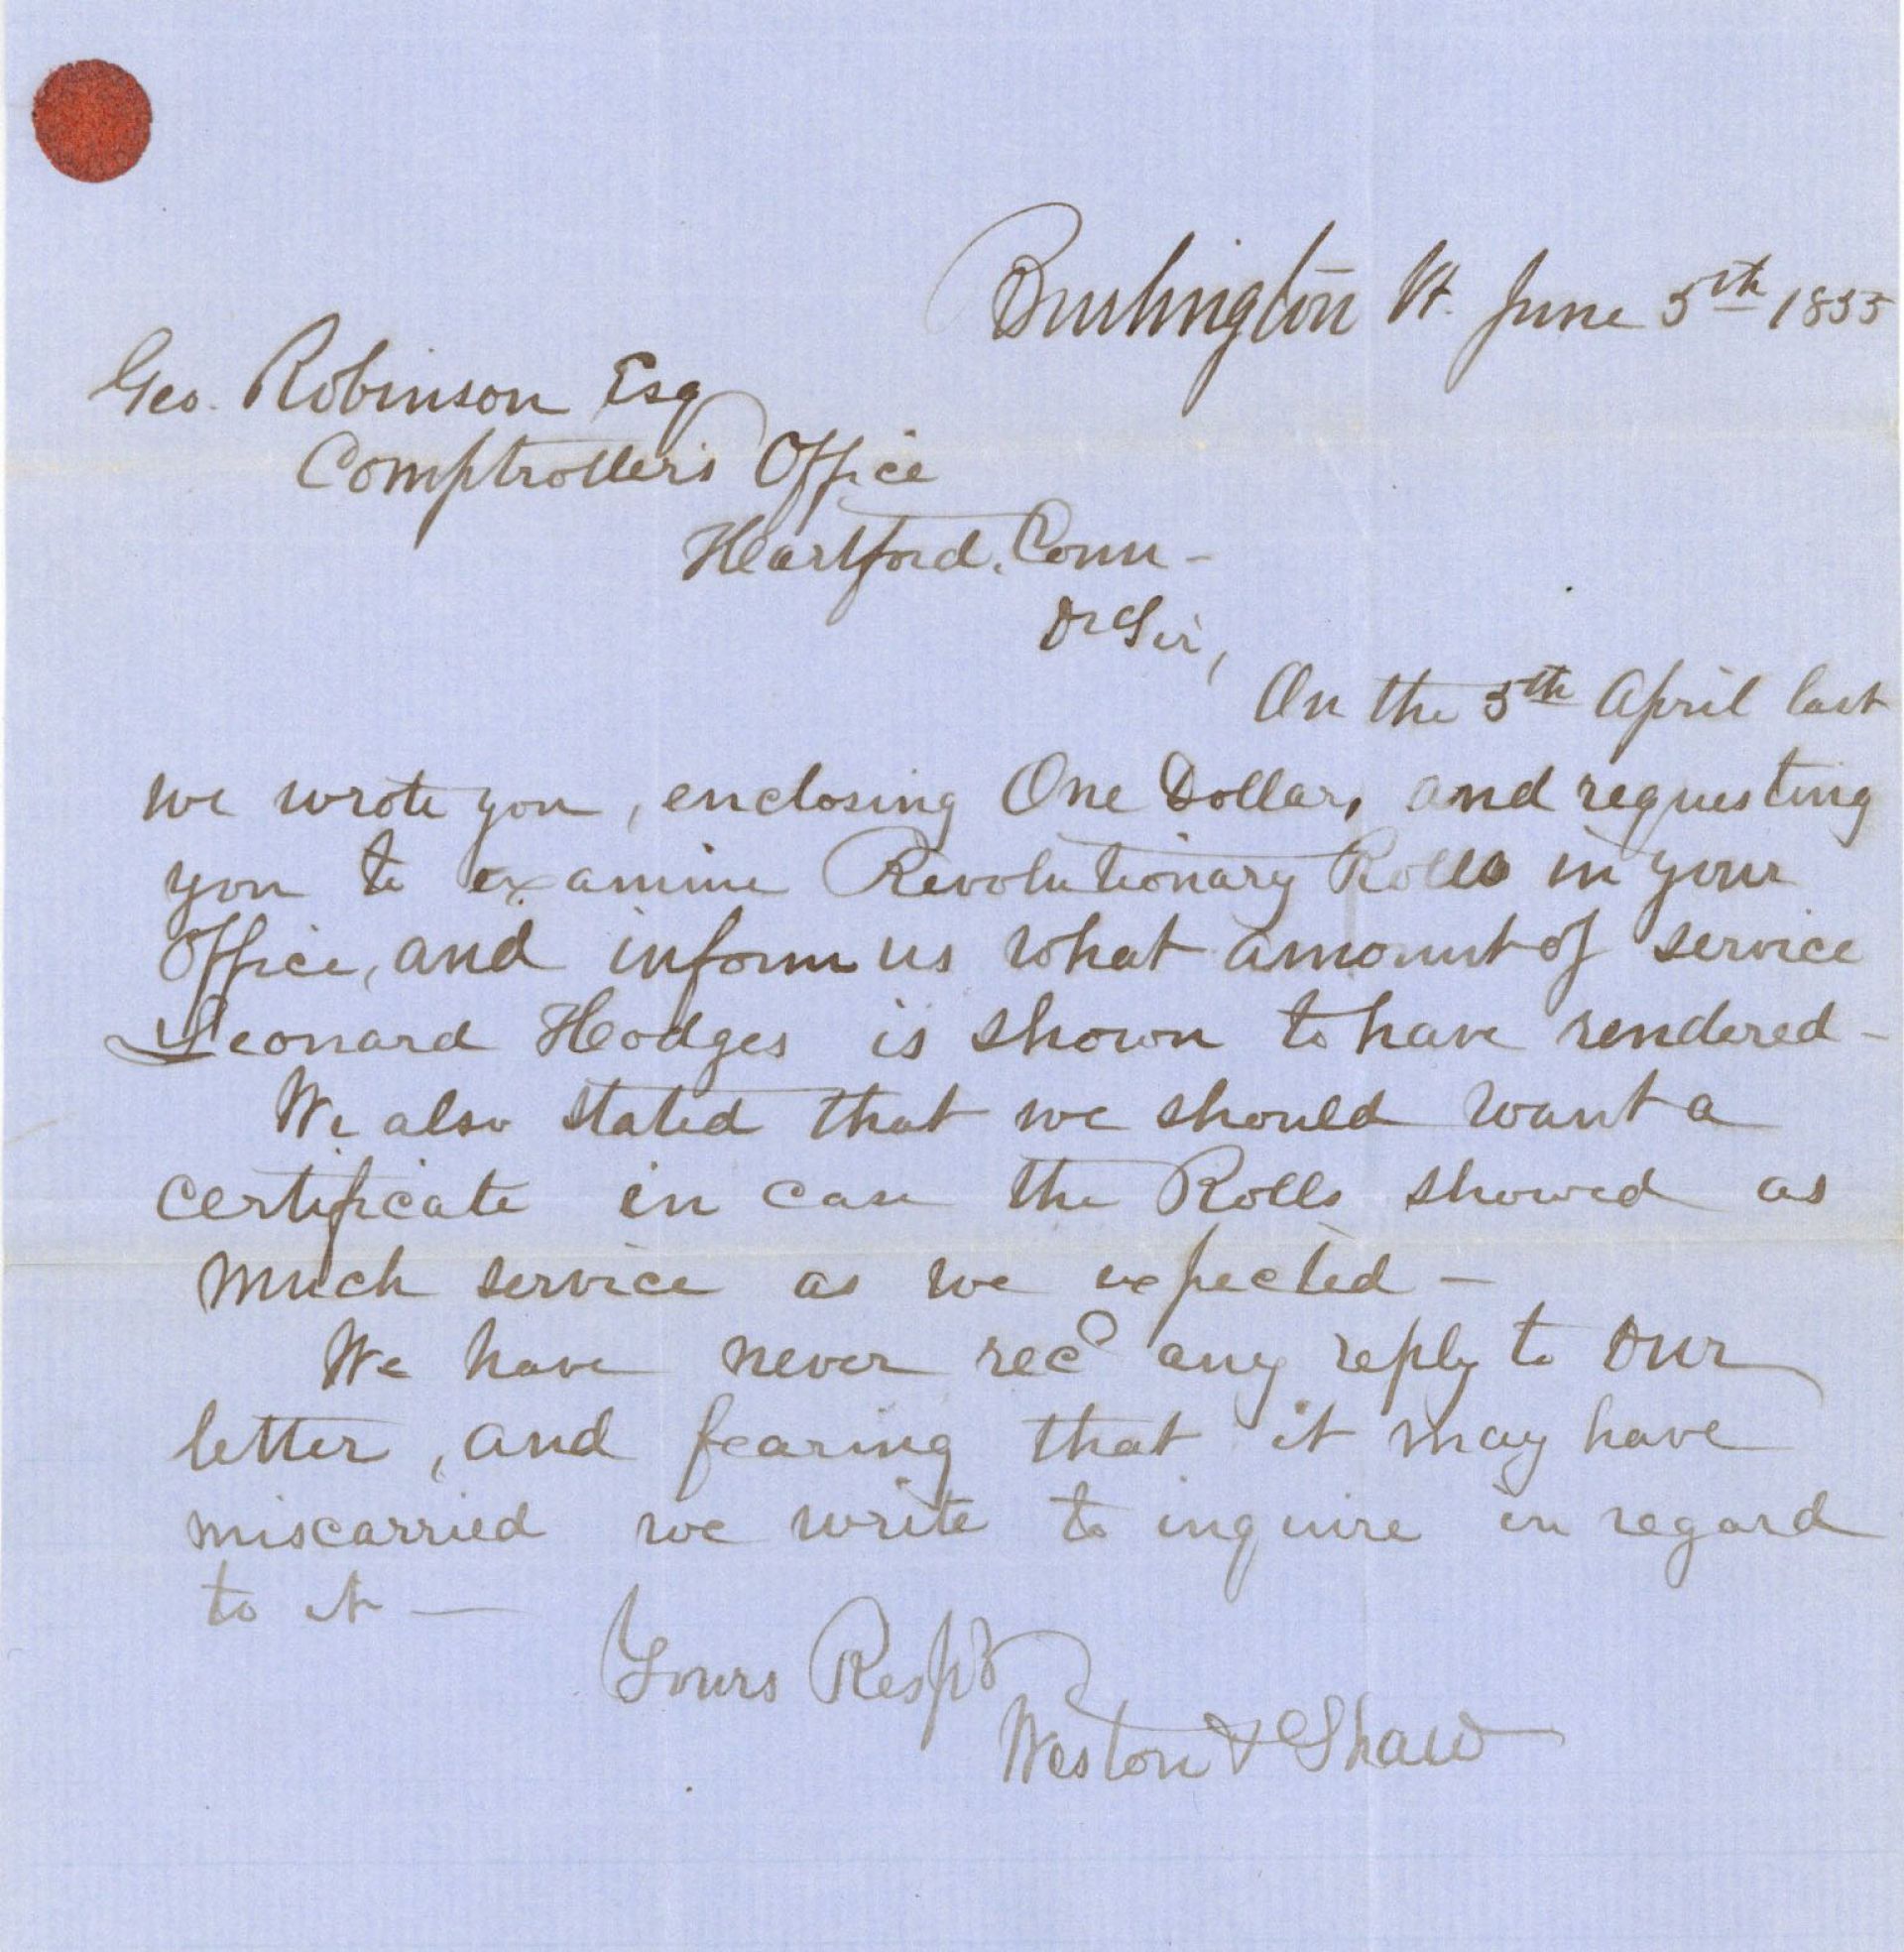 Burlington Vt. June 5th 1855
Geo. Robinson Esq
Comptrollers Office
Hartford, Conn -
Dr Sir,
On the 5th April last
we wrote you, enclosing One Dollar, and requesting
you to examine Revolutionary Rolls in your
Office, and inform us what amount of service
Leonard Hodges is shown to have rendered -
We also stated that we should want a
certificate in case the Rolls showed as
much service as we expected -
We have never recd any reply to our
letter, and fearing that it may have
miscarried we write to inquire in regard
to it —
Yours Respt
Weston & Shaw